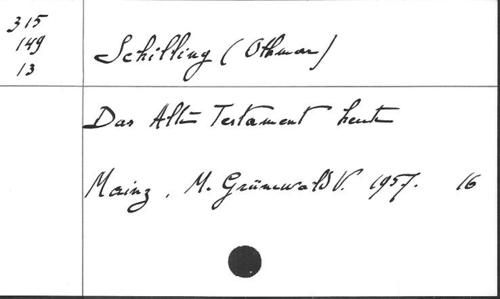 315
149
13
Schilling (Othmar)
Das Alte Testament heute
Mainz, M. Grünewald V. 1957. 16